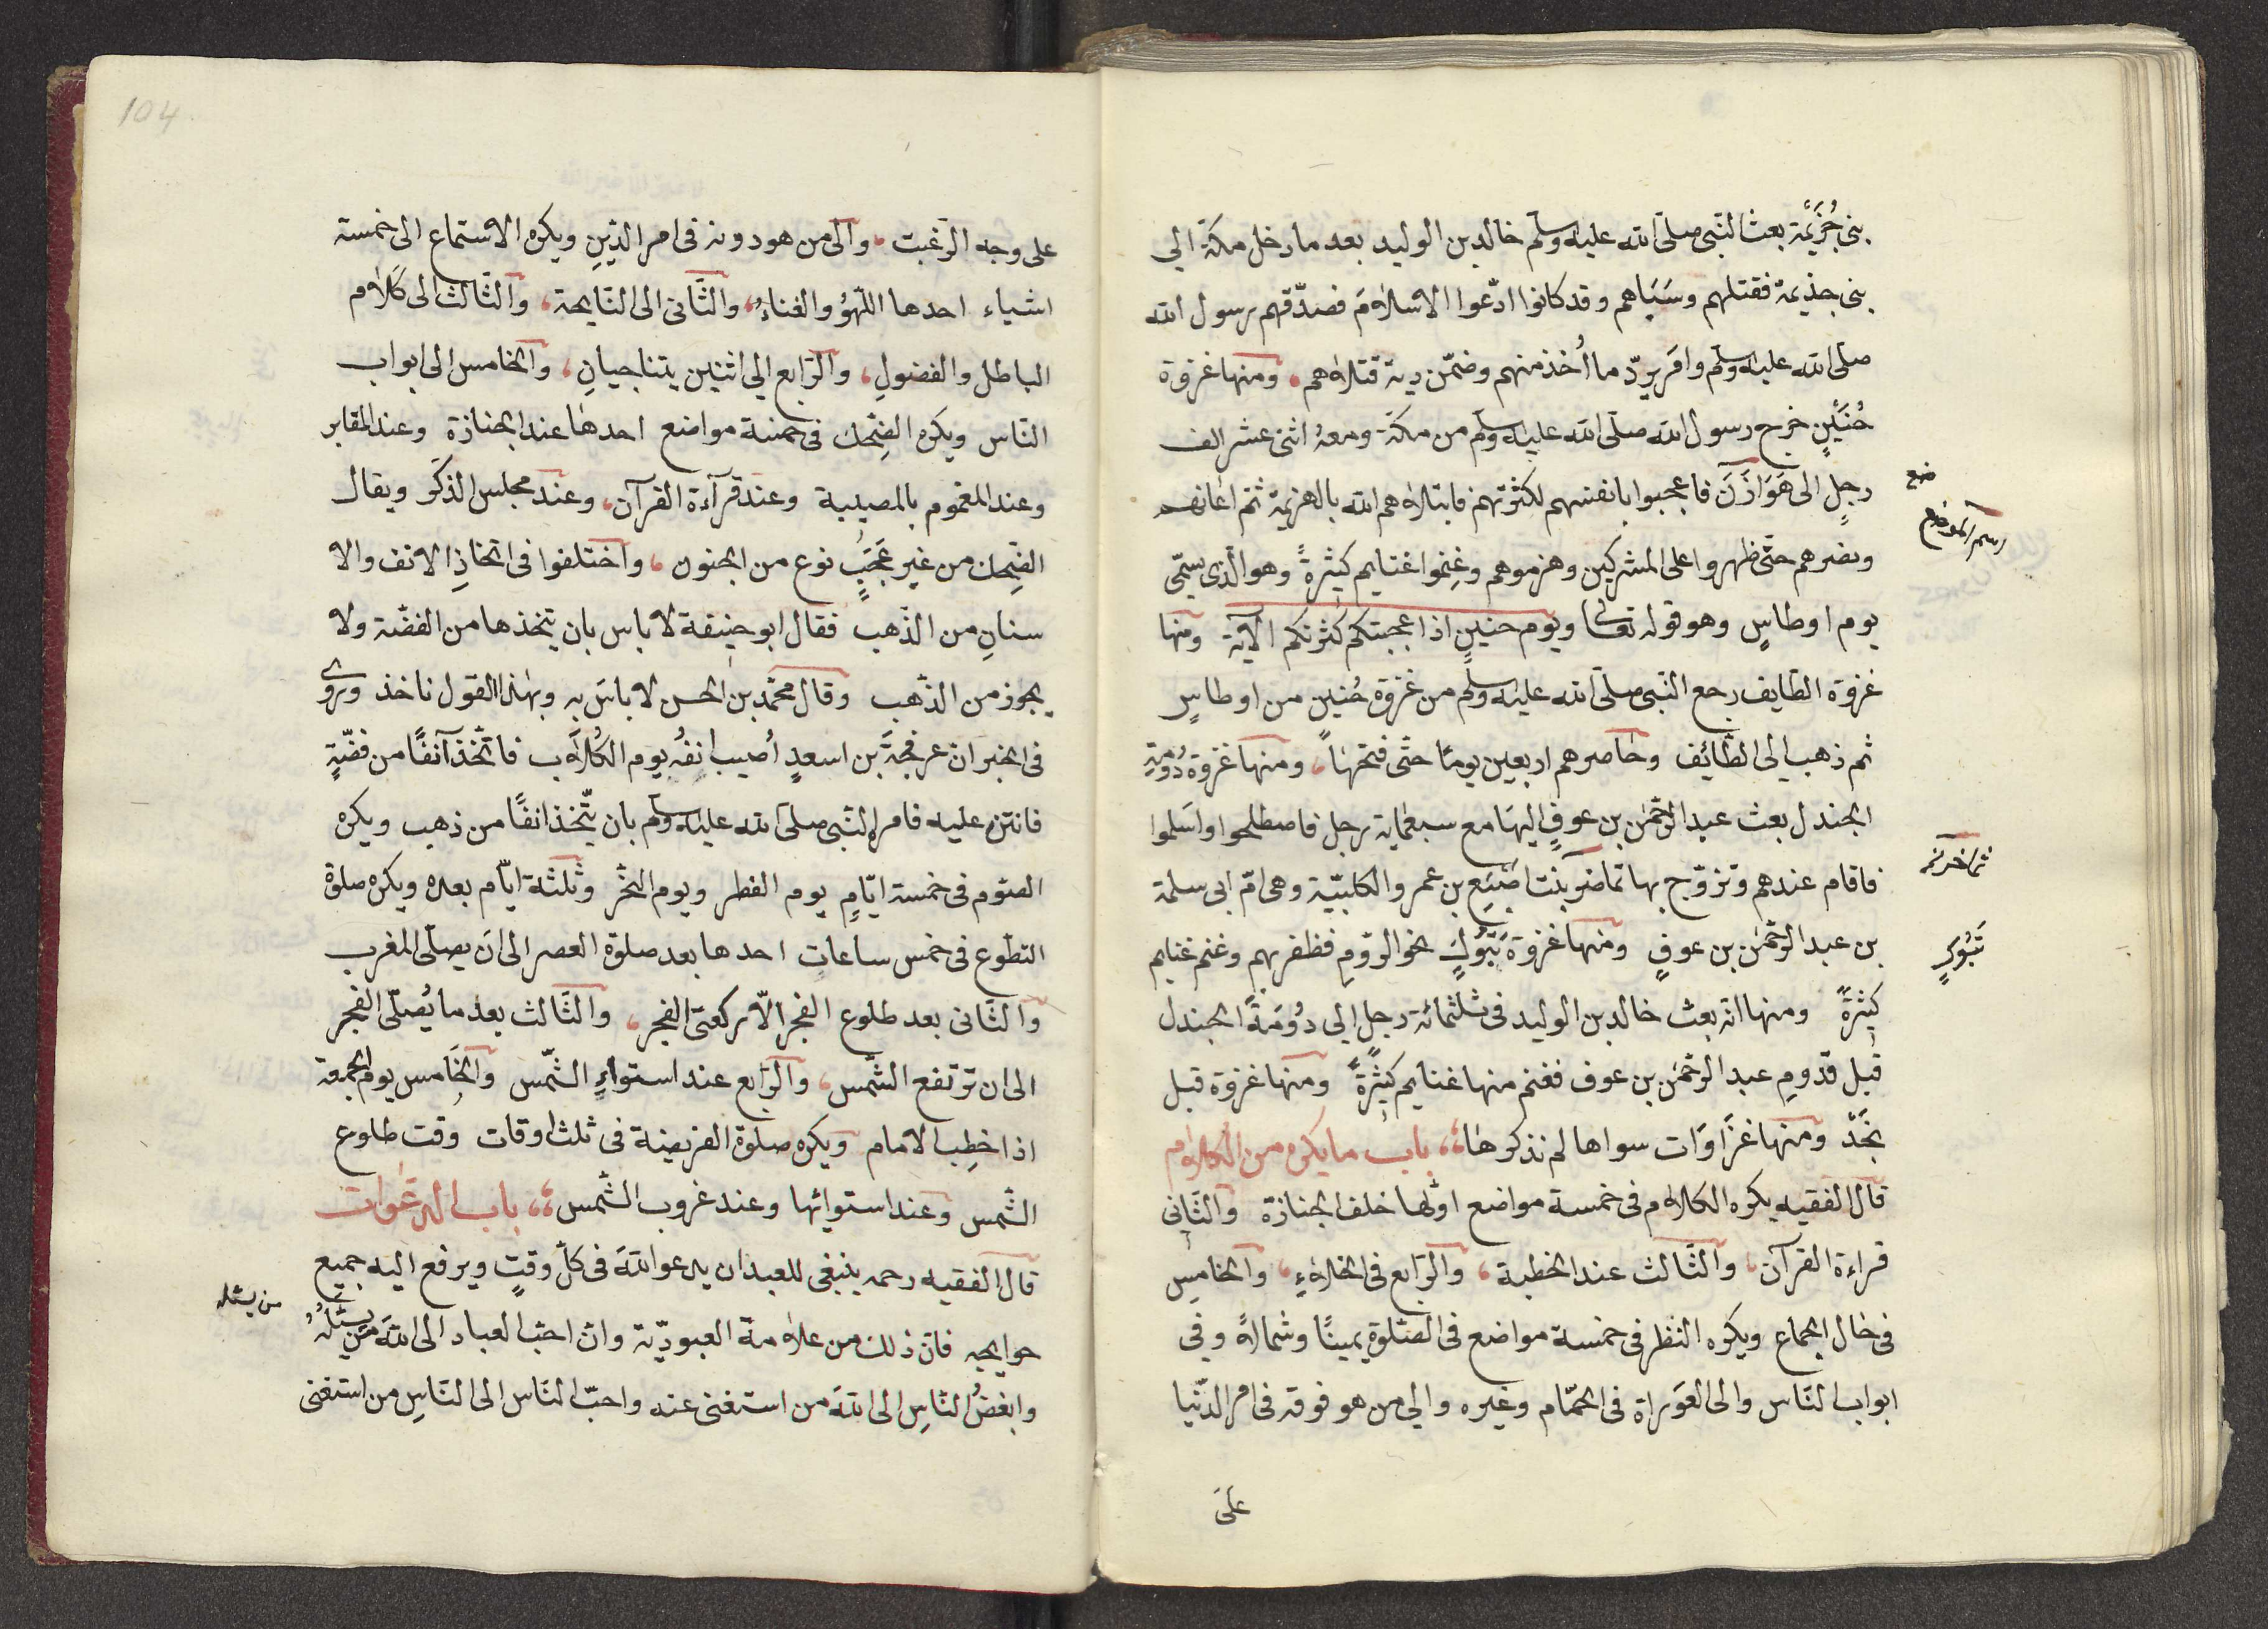 بنى جُزَيْمَة بعث النّبى صلّى الله عليه وسلّم خالد بن الوليد بعد ما دخل مكّة الي
بنى جذيمة فقتلهم وسَبَاهم وقد كانوا ادّعوا الاسلامَ فصدّقهم رسول الله
صلّى الله عليه وسلّم وامر بردّ ما اُخذ منهم وضمّن دية قتلاهم ومنها غزوة
حُنَيْنٍ خرج رسول الله صلّى الله عليه وسلّم من مكّة ومعهُ اثنى عشر الف
رجلٍ الى هَوَازَنَ فاعجبوا بانفسهم لكثرتهم فابتلاهم الله بالهزيمة ثمّ اعانهم
ونصرهم حتّى ظهروا على المشركين وهزموهم وغِنموا غنايم كثيرةً وهو الّذى يسمّى
يوم اوطاسٍ وهو قوله تعالى ويوم حنينٍ اذ اعجبتكم كثرتكم الآية ومنها
غزوة الطايف رجع النّبى صلّى الله عليه وسلّم من غزوة حُنينٍ من اوطاسٍ
ثم ذهب الى الطّائيف وحاصرهم اربعين يومًا حتّى فتحها ومنها غزوة دُومَةِ
الجندل بعث عبد الرّحمٰن بن عوفٍ اليها مع سبعماية رجل فاصطلحوا واَسلموا
فاقام عندهم وتزوّج بها تماضر بنت اصَبَع بن عمر والكلبيّة وهى امّ ابى سلمة
بن عبد الرّحمٰن بن عوفٍ ومنها غزوة تَبُوكٍ نحو الرّومِ فظفر بهم وغنم غنايم
كثيرةً ومنها انّه بعث خالد بن الوليد فى ثلثمائة رجلٍ الى دُوُمَةِ الجندل
قبل قدّومِ عبد الرّحمٰن بن عوف فغنم منها غنايم كثيرةً ومنها غزوة قبل
نجَدّ ومنها غزَاوَات سواها لم نذكرها باب ما يكره من الكلام
قال الفقيه يكره الكلام فى خمسة مواضع اوّلها خلف الجنازة والثّانى
قراءة القرآن والثّالث عند الخطبة والرّابع فى الخلاءِ والخامسِ
فى حال الجماع ويكره النّظر فى خمسة مواضع فى الصّلوة يمينًا وشمالاً وفى
ابواب النّاس والى العوَراة فى الحمّام وغيره والى من هو فوقه فى امر الدّنيا
على
اسم الموضع
تَبُوكٍ
104
على وجه الرّغبت والى من هو دونه فى امر الدّينِ ويكره الاستماع الى خمسة
اشياء احدها اللّهوُ والغناءُ والثّانى الى النّايحة والثّالث الى كلام
الباطل والفضولِ والرّابع الى اثنين يتناجيانِ والخامس الى ابواب
النّاس ويكره الضِحك فى خمسة مواضع احدها عند الجنازة وعند المقابر
وعند المغموم بالمصيبة وعند قرآءة القرآن وعند مجلس الذّكر ويقال
الضّحك من غير عَجَبٍ نوع من الجنون واختلفوا فى اتّخاذِ الانف والا
سنانِ من الذّهب فقال ابو حنيفة لا باس بان يتخذها من الفضّة ولا
يجوز من الذّهب وقال محمّد بن الحسن لا باسَ به وبهذا القول ناخذ وروى
فى الخبر انّ عرفجة بن اسعدٍ اُصيب انفُه يوم الكُلاب فاتّخذ آنفًا من فضّةٍ
فانتن عليه فامره النّبى صلّى الله عليه وسلّم بان يتّخذ انفًا من ذهب ويكره
الصّوم فى خمسة ايّامٍ يوم الفطر ويوم النّحر وثلثة ايّام بعده ويكره صلوة
التطوّع فى خمس ساعاتٍ احدها بعد صلوة العصر الى ان يصلّى المغرب
والثّانى بعد طلوع الفجر الّا ركعتى الفجر والثّالث بعد ما يُصلّى الفجر
الى ان ترتفع الشّمس والرّابع عند استواءِ الشّمس والخَامس يوم الجمعة
اذا خطب الامام ويكره صلوة الفريضة فى ثلث اوقات وقت طلوع
الشّمس وعند استوائها وعند غروب الشّمس باب الدعوات
قال الفقيه رحمه ينبغى للعبد ان يدعو اللهَ فى كلّ وقتٍ ويرفع اليه جميع
حوايجه فانّ ذلك من علامة العبوديّة وانّ احبّ العباد الى اللهَ مَن يسئلُهُ
وابغضُ النّاسِ الى اللهَ من استغنى عنه واحبّ النّاس الى النّاسِ من استغنى
من يسئله